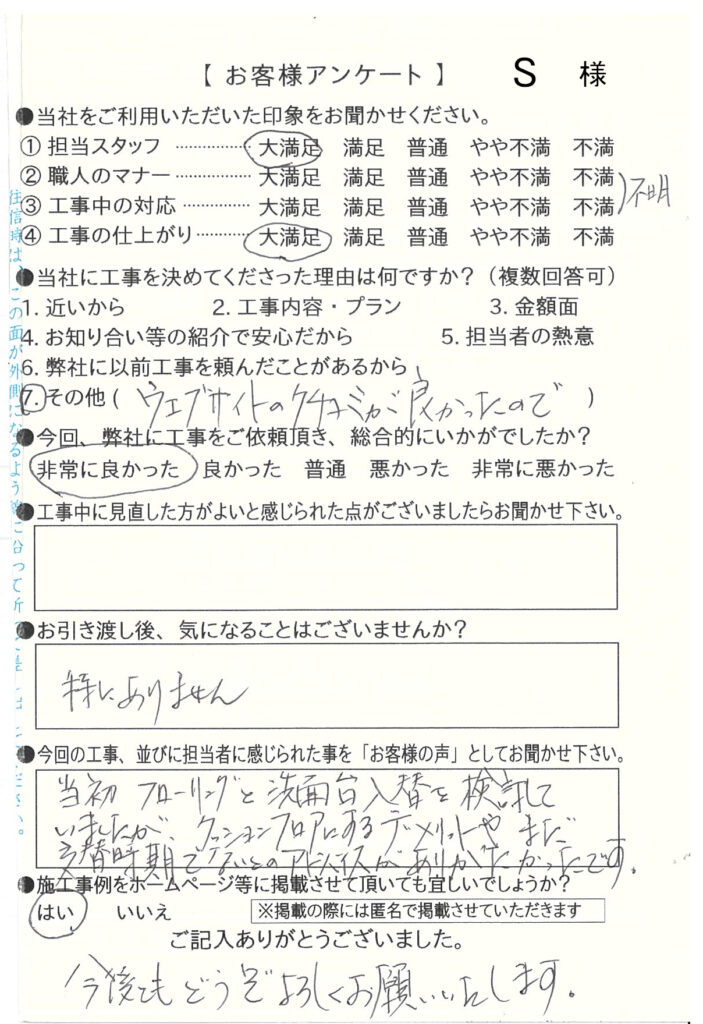 【 お客様アンケート 】 S 様
●当社をご利用いただいた印象をお聞かせください。
① 担当スタッフ ……………… 大満足 満足 普通 やや不満 不満
② 職人のマナー……………… 大満足 満足 普通 やや不満 不満
③ 工事中の対応 …………… 大満足 満足 普通 やや不満 不満
)不明
④ 工事の仕上がり………… 大満足 満足 普通 やや不満 不満
●当社に工事を決めてくださった理由は何ですか？（複数回答可）
1. 近いから 2. 工事内容・プラン 3. 金額面
4. お知り合い等の紹介で安心だから 5. 担当者の熱意
6. 弊社に以前工事を頼んだことがあるから
7. その他 ( ウェブサイトのクチコミが良かったので )
●今回、弊社に工事をご依頼頂き、総合的にいかがでしたか？
非常に良かった 良かった 普通 悪かった 非常に悪かった
●工事中に見直した方がよいと感じられた点がございましたらお聞かせ下さい。
●お引き渡し後、気になることはございませんか？
特にありません
●今回の工事、並びに担当者に感じられた事を「お客様の声」としてお聞かせ下さい。
当初 フローリングと洗面台入替を検討して
いましたが、クッションフロアにするデメリットや まだ
交替時期でないとのアドバイスがありがたかったです。
●施工事例をホームページ等に掲載させて頂いても宜しいでしょうか？
はい いいえ ※掲載の際には匿名で掲載させていただきます
ご記入ありがとうございました。
今後ともどうぞよろしくお願いいたします。
往信時は、この面が外側になるよう
に沿って折